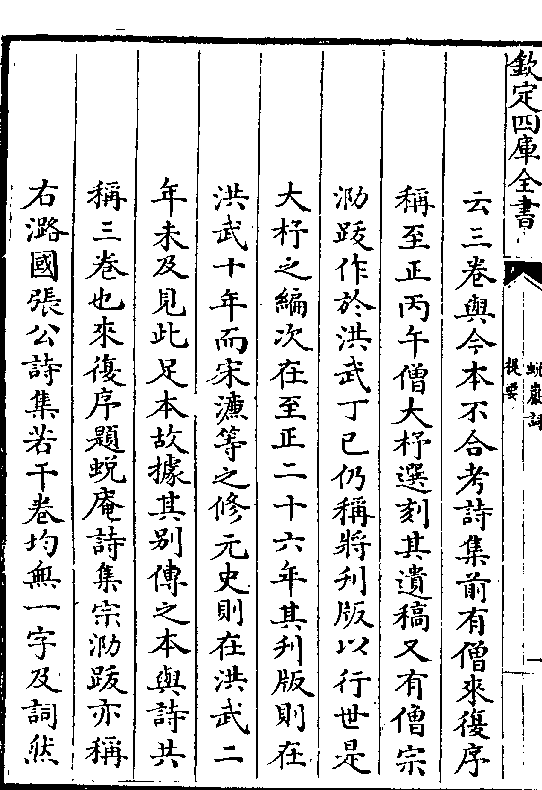 欽定四庫全書
蛻巖詞
提要
一
云三卷與今本不合考詩集前有僧來復序
稱至正丙午僧大杼選刻其遺稿又有僧宗
泐跋作於洪武丁巳仍稱將刋版以行世是
大杼之編次在至正二十六年其刋版則在
洪武十年而宋濓等之修元史則在洪武二
年未及見此足本故據其别傳之本與詩共
稱三卷也來復序題蛻庵詩集宗泐跋亦稱
右潞國張公詩集若干卷均無一字及詞然